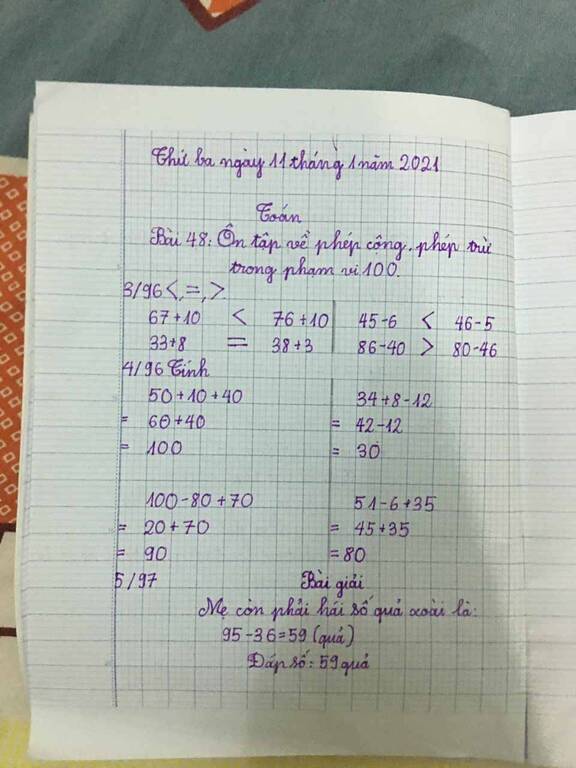 Thứ ba ngày 11 tháng 1 năm 2021
Toán
Bài 48: Ôn tập về phép cộng, phép trừ
trong phạm vi 100.
3/96 <, =, >
67+10 < 76+10 45-6 < 46-5
33+8 = 38+3 86-40 > 80-46
4/96 Tính
50+10+40 34+8-12
= 60+40 = 42-12
= 100 = 30
100-80+70 51-6+35
= 20+70 = 45+35
= 90 = 80
5/97 Bài giải
Mẹ còn phải hái số quả xoài là:
95-36=59 (quả)
Đáp số: 59 quả